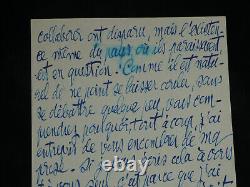 collaborer ont disparu, mais l'existen-
ce même du pays où ils paraissent
est en question. Comme il est natu-
rel de ne point se laisser couler, sans
se débattre quelque peu, sans com-
prendre pourquoi, tout à coup, j'ai
entrepris de vous encombrer de ma
prose. Si cela à
c'est parce que j'ai